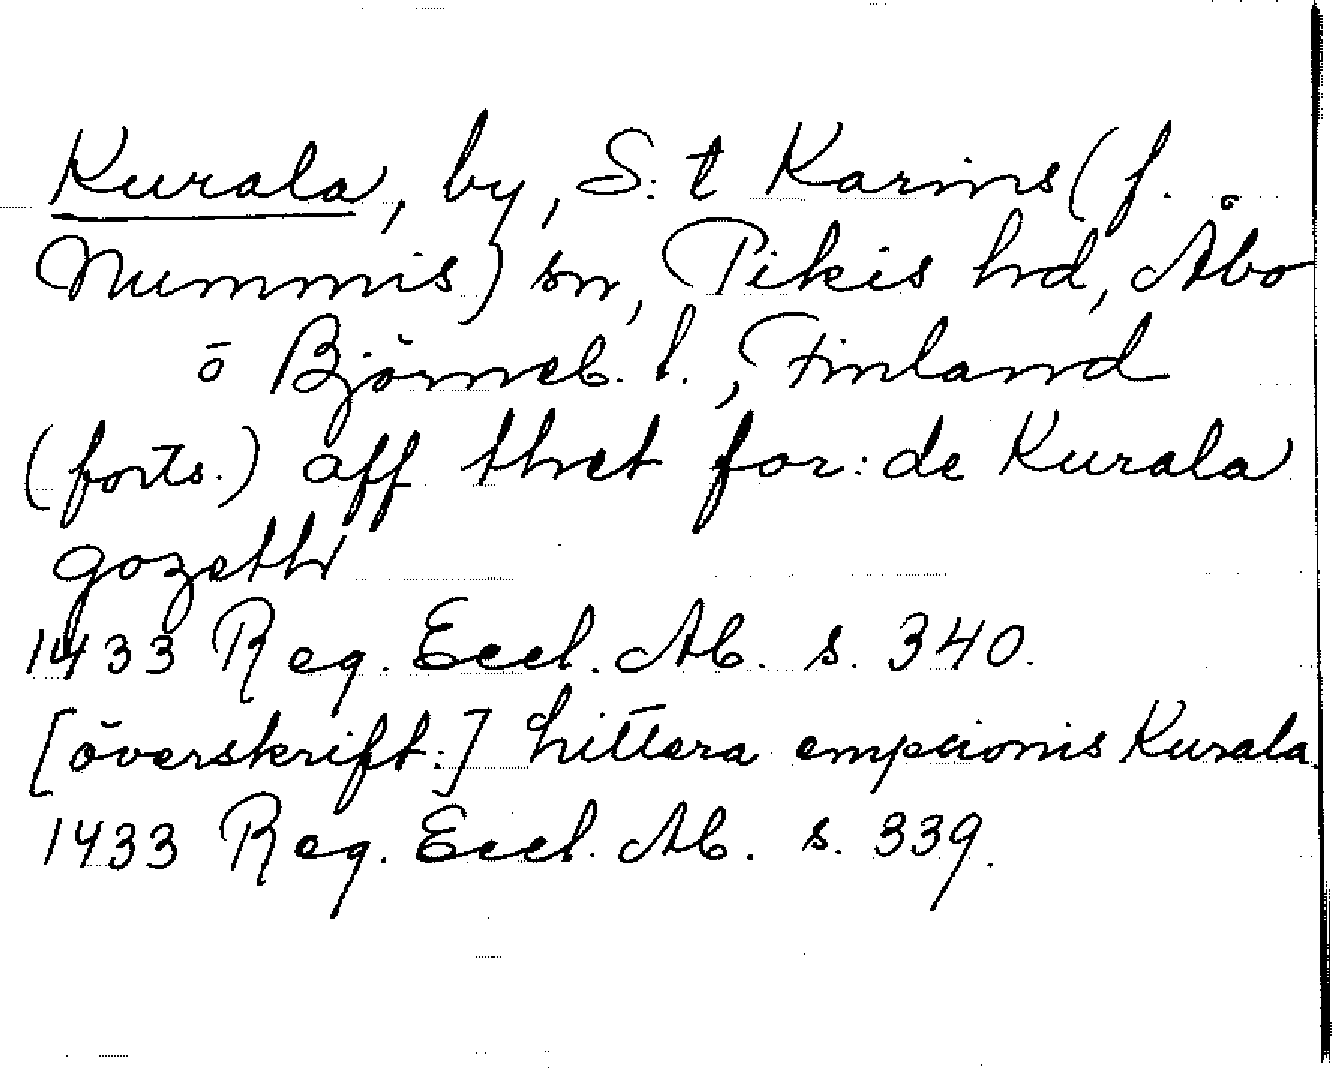 Kurala, by, S:t Karins (f.
Nummis) sn, Pikis hd, Åbo
o Björneb. l., Finland
(forts.) aff thet for:de Kurala
gozeth
1433 Reg. Eccl. Ab. s. 340.
[överskrift:] Littera empcionis Kurala.
1433 Reg. Eccl. Ab. s. 339.